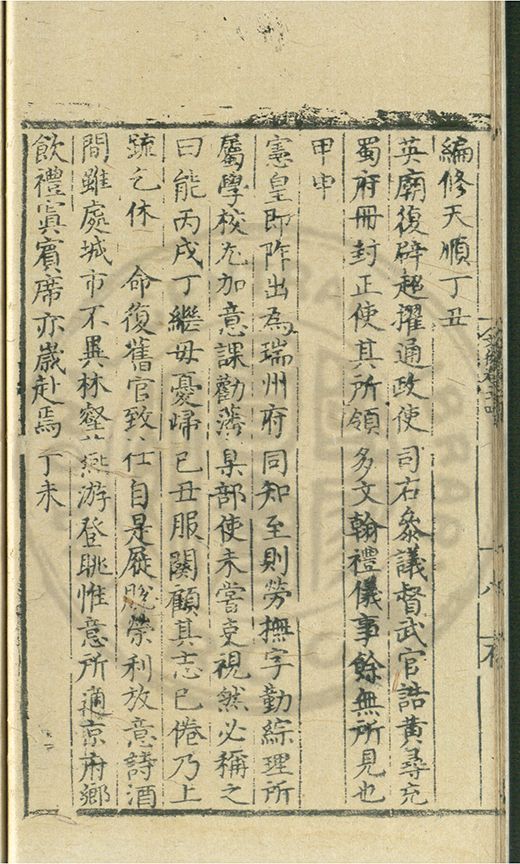 編修天順丁丑
英廟復辟超擢通政使司右叅議督武官誥黄尋充
蜀府冊封正使其所領多文翰禮儀事餘無所見也
甲申
憲皇即阼出為瑞州府同知至則勞撫字勤綜理所
屬學校尤加意課勸藩臬部使未嘗吏視然必稱之
曰能丙戌丁繼母憂歸已丑服闋顧其志已倦乃上
疏乞休 命復舊官致仕自是屣脫榮利放意詩酒
間雖處城市不異林壑燕游登眺惟意所適京府鄉
飲禮賓賓席亦歲赴焉丁未